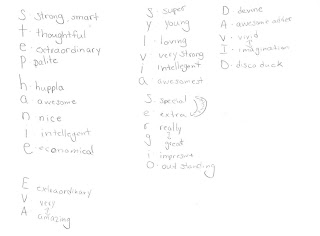 S strong, smart
t. thoughtful
e. extraordinary
p palite
h huppla
a awesome
n. nice
i. intellegent
e economical
E extraordinary
V very
A amazing
S. super
y young
l. loving
v very strong
i intellegent
a. awesomest
S. special
e extra
r really
g great
i impresive
O. out standing
D. devine
A. awesome
V. vivid
I. imagination
D. disco duck